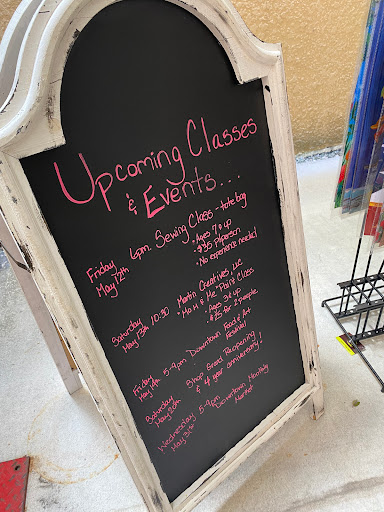 Upcoming Classes
& Events...
Friday 6pm Sewing Class - tote bag
May 12th • Ages 7 & up
• $35 p/person
• No experience needed
Saturday 10:30 Martin Creatives, LLC
May 13th "Mom & Me" Paint Class
• Ages 3 & up
• $25 for 2 people
Friday 5-9pm Downtown Food & Art
May 19th Festival
Saturday Shop Grand Reopening
May 20th & 4 year anniversary
Wednesday 5-9pm Downtown Monthly
May 31st Market